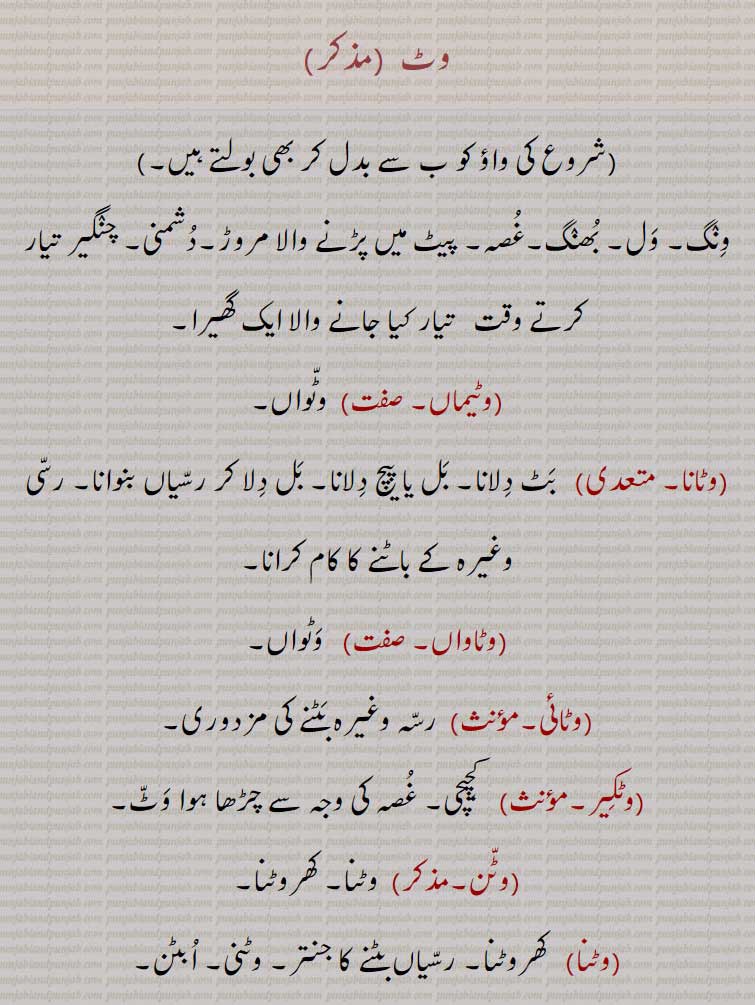 وٹ (مذکر)
(شروع کی واؤ کو ب سے بدل کر بھی بولتے ہیں۔)
وِنگ۔ وَل۔ بُھنگ۔غُصہ۔ پیٹ میں پڑنے والا مروڑ۔دُشمنی۔ چنگیر تیار
کرتے وقت تیار کیا جانے والا ایک گھیرا۔
(وٹیماں۔ صفت) وٹّواں۔
(وٹانا۔ متعدی) بَٹ دِلانا۔ بَل یا پیچ دِلانا۔ بَل دِلا کر رسّیاں بنوانا۔ رسّی
وغیرہ کے باٹنے کا کام کرانا۔
(وٹاواں۔ صفت) وَٹواں۔
(وٹائی۔مؤنث) رسّہ وغیرہ بَٹنے کی مزدوری۔
(وٹکِیر۔مؤنث) کچیچی۔ غُصہ کی وجہ سے چڑھا ہوا وَٹّ۔
(وٹّن۔مذکر) وٹنا۔ کھروٹنا۔
(وٹنا) کھروٹنا۔ رسّیاں بٹنے کا جنتر۔ وٹنی۔ اُبٹن۔